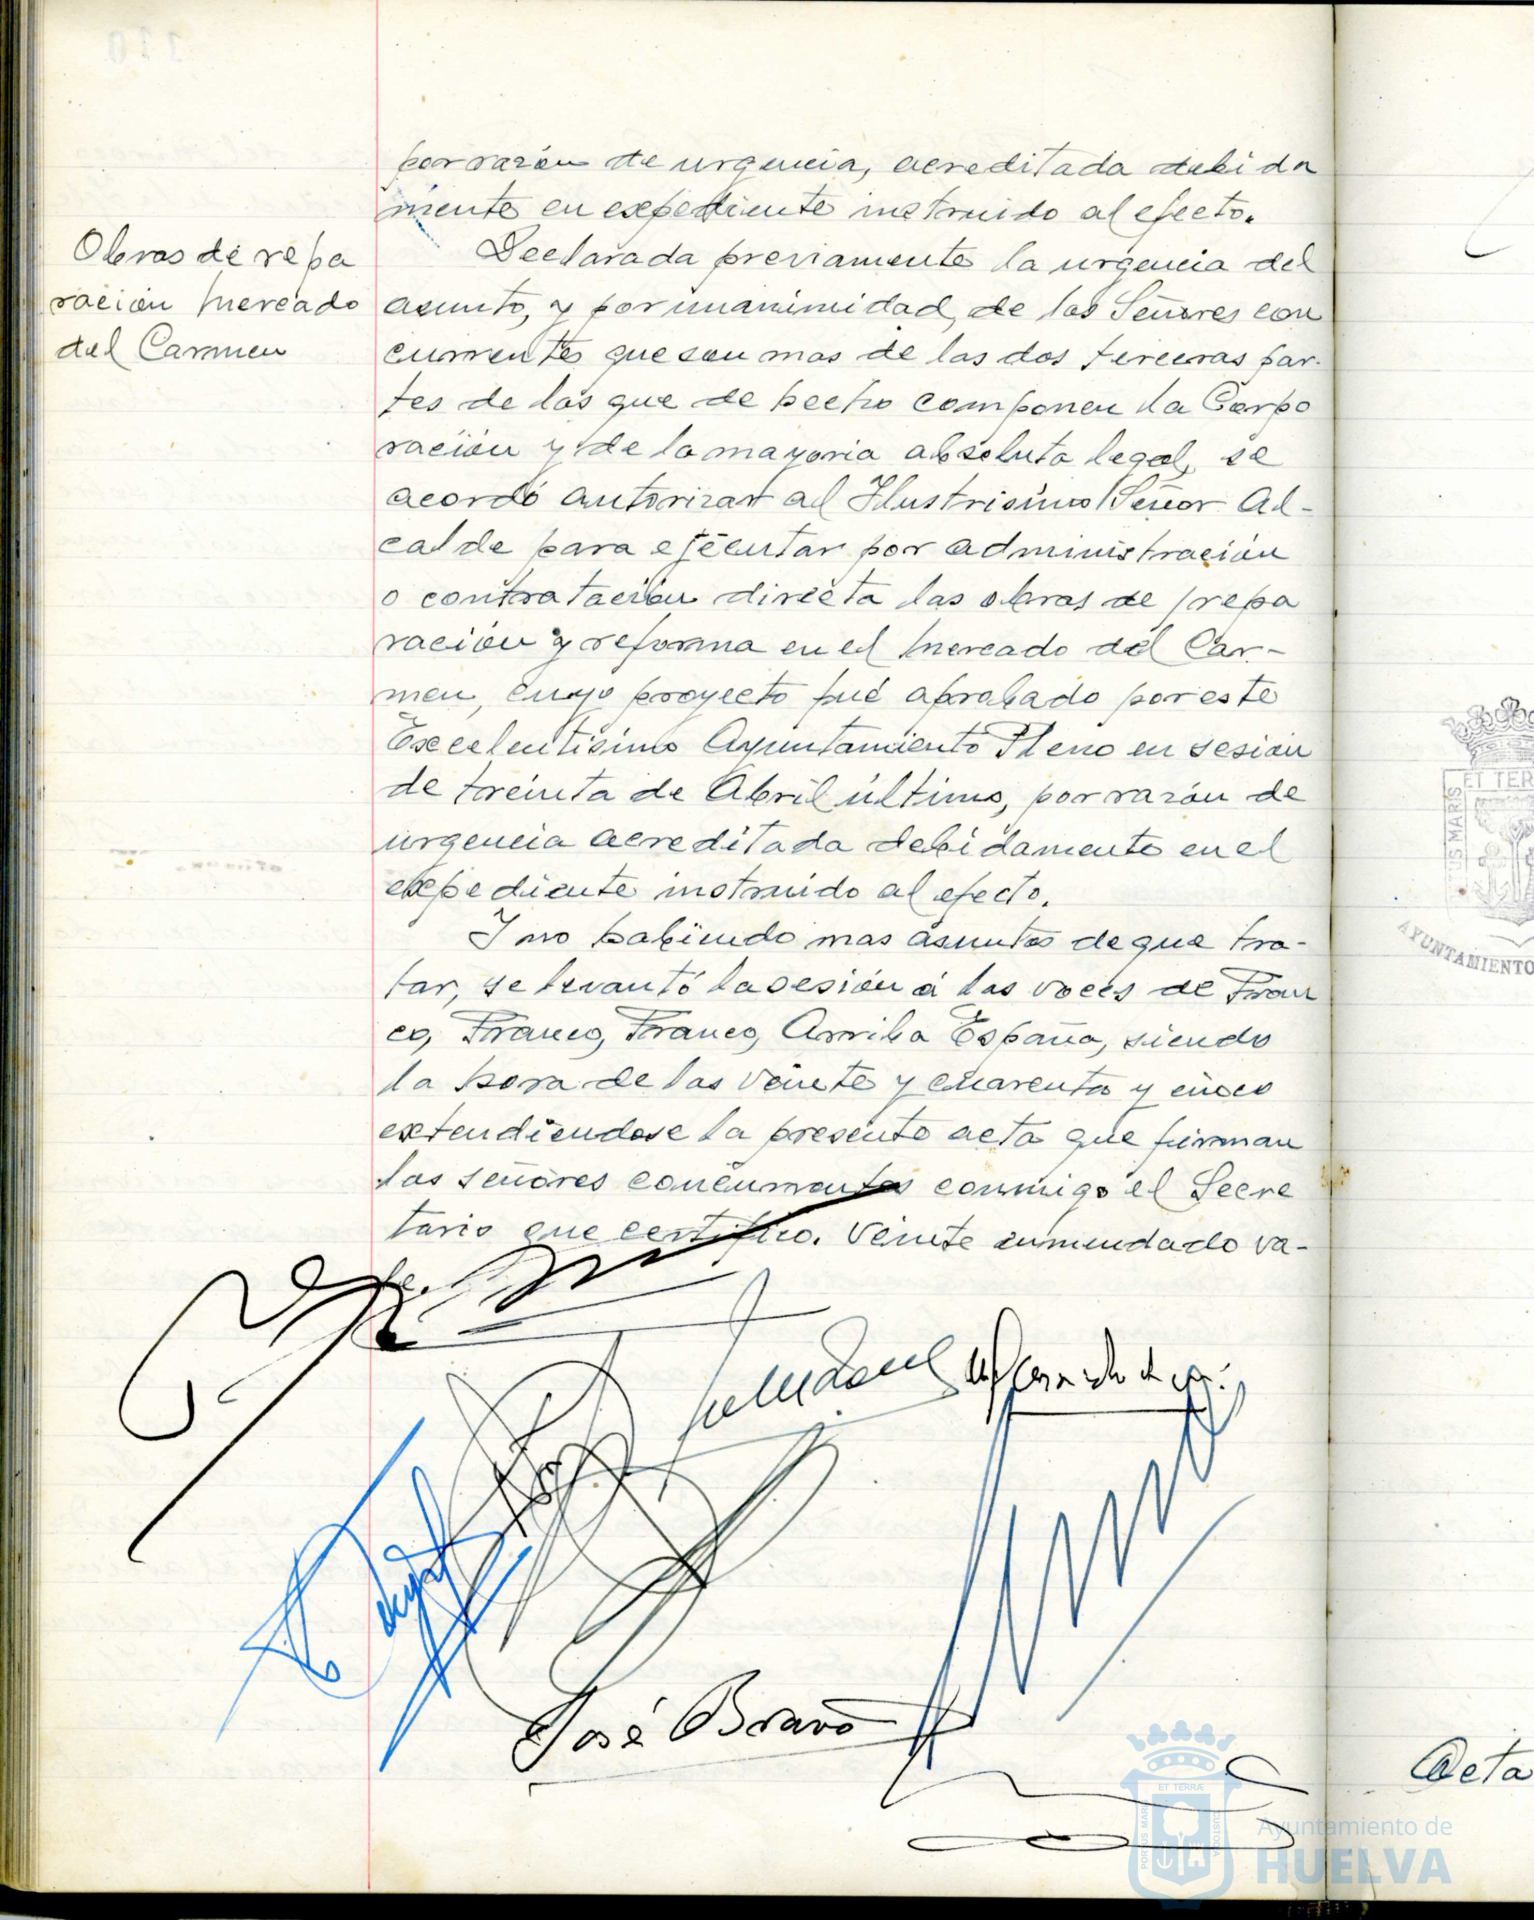 por razón de urgencia, acreditada debida
mente en expediente instruido al efecto.
Obras de repa
ración Mercado
del Carmen
Declarada previamente la urgencia del
asunto, y por unanimidad, de los Señores con
currentes que son mas de las dos terceras par-
tes de los que de hecho componen la Corpo
ración y de la mayoria absoluta legal, se
acordó autorizar al Ilustrisimo Señor Al-
calde para ejecutar por administración
o contratación directa las obras de repa
ración y reforma en el Mercado del Car-
men, cuyo proyecto fué aprobado por este
Excelentisimo Ayuntamiento Pleno en sesión
de treinta de Abril último, por razón de
urgencia acreditada debidamente en el
expediente instruido al efecto.
Y no habiendo mas asuntos de que tra-
tar, se levantó la sesión á las voces de Fran
co, Franco, Franco, Arriba España, siendo
la hora de las veinte y cuarenta y cinco
extendiendose la presente acta que firman
los señores concurrentes conmigo el Secre
tario que certifico. Veinte enmendado va-
le.
José Bravo
ET TERRÆ
AYUNTAMIENTO
Acta
Ayuntamiento de
HUELVA